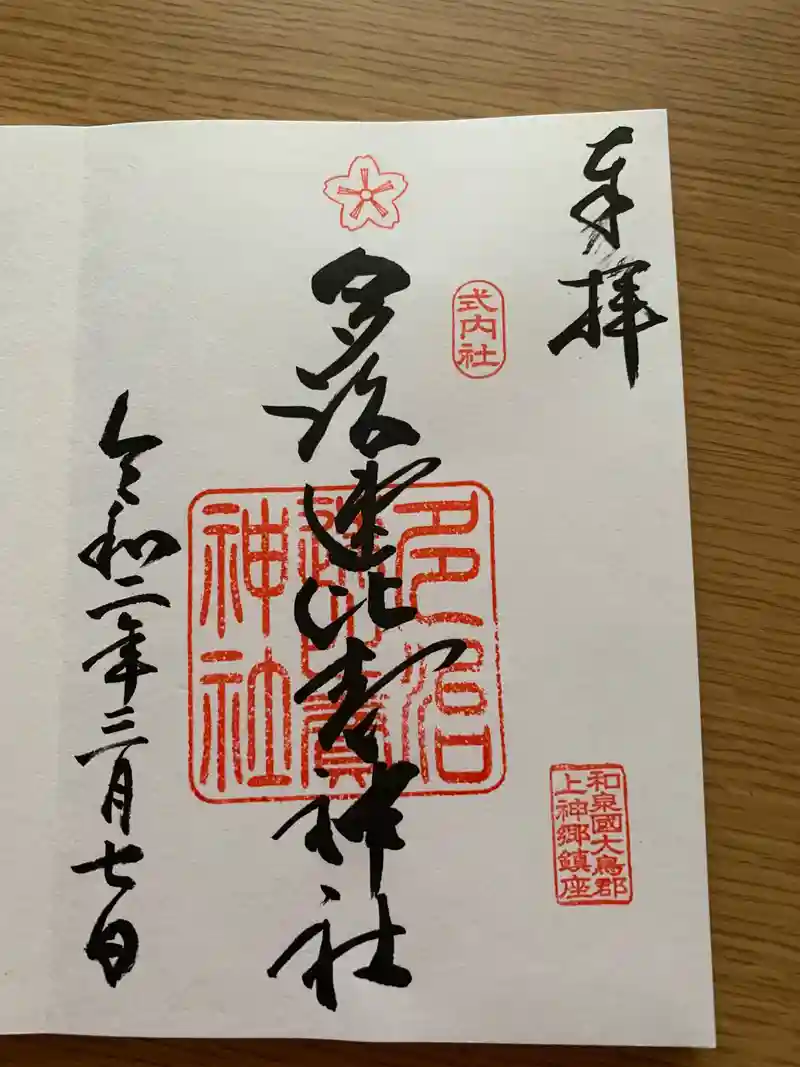 奉拝
式内社
和泉國大鳥郡
上神郷鎮座
多治速比賣神社
多治
速比賣
神社
令和二年三月七日